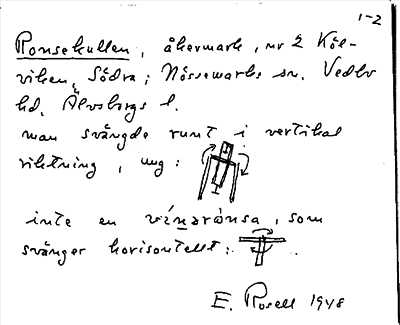 1-2
Ronsekullen, åkermark, nr 2 Köl-
viken, Södra; Nössemarks sn. Vedbo
hd, Älvsborgs l.
man svängde runt i vertikal
riktning, ung:
inte en vínərònsa, som
svänger horisontellt:
E. Rosell 1948